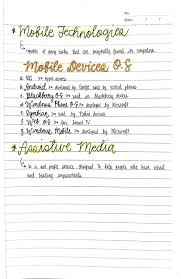 Mobile Technologies
consists of many tasks that are originally found in computers.
Mobile Devices O.S
a. IOS → Apple devices
b. Android → developed by Google used by android phones
c. Blackberry O.S → used in blackberry devices
d. Windows Phone O.S → developed by Microsoft
e. Symbian → used by Nokia devices
f. Web O.S → for Smart TV
g. Windows Mobile → developed by Microsoft
Assistive Media
is a non profit service designed to help people who have visual
and reading impairments.